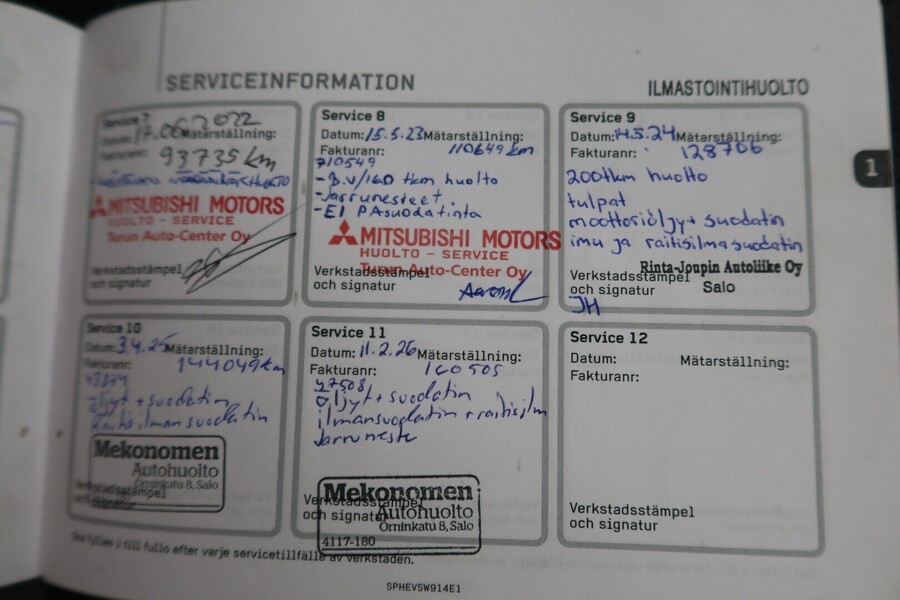 SERVICEINFORMATION
ILMASTOINTIHUOLTO
1
Service 7
Datum: 17.06.2022 Mätarställning:
Fakturanr: 93735 km
MITSUBISHI MOTORS
HUOLTO - SERVICE
Turun Auto-Center Oy
Verkstadsstämpel
och signatur
Service 8
Datum: 15.5.23 Mätarställning:
Fakturanr: 110649 km
710549
- B.v/160 tkm huolto
- Jarrunesteet.
- EI PAsuodatinta
MITSUBISHI MOTORS
HUOLTO - SERVICE
Turun Auto-Center Oy
Verkstadsstämpel
och signatur
Service 9
Datum: 14.5.24 Mätarställning:
Fakturanr: 128706
200tkm huolto
tulpat
moottoriöljyt suodatin
imu ja raitisilmasuodatin
Rinta-Joupin Autoliike Oy
Verkstadsstämpel
Salo
och signatur
JH
Service 10
Datum: 3.4.25 Mätarställning:
Fakturanr: 144049km
öljyt + suodatin
Raitisilmansuodatin
Mekonomen
Autohuolto
Örninkatu 8, Salo
Verkstadsstämpel
och signatur
Service 11
Datum: 11.2.26 Mätarställning:
Fakturanr: 160505
47508
öljyt + suodatin
ilmansuodatin + raitisilm
Jarruneste
Mekonomen
Verkstadsstämpel
Autohuolto
och signatur
Örninkatu 8, Salo
4117-180
Service 12
Datum: Mätarställning:
Fakturanr:
Verkstadsstämpel
och signatur
Ska fyllas i till fullo efter varje servicetillfälle av verkstaden.
SPHEVSW914E1